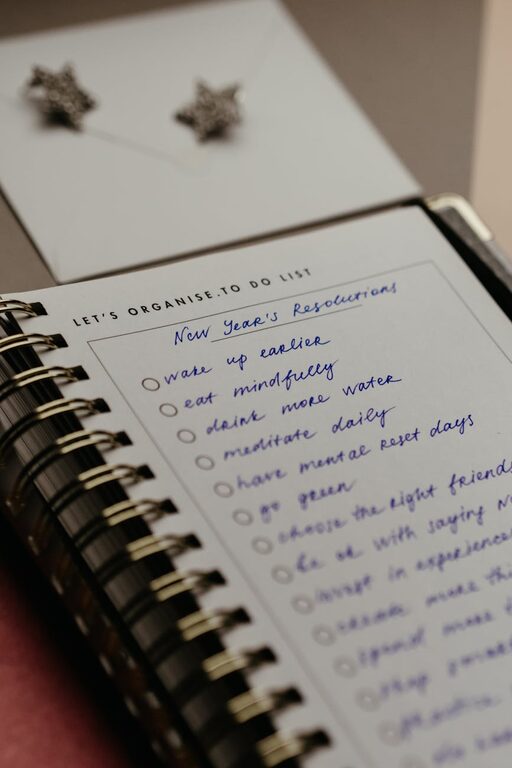 LET'S ORGANISE.TO DO LIST
New Year's Resolutions
wake up earlier
eat mindfully
drink more water
meditate daily
have mental reset days
go green
choose the right friends
be ok with saying No
invest in experiences
create more thi
spend more t
stop
practice